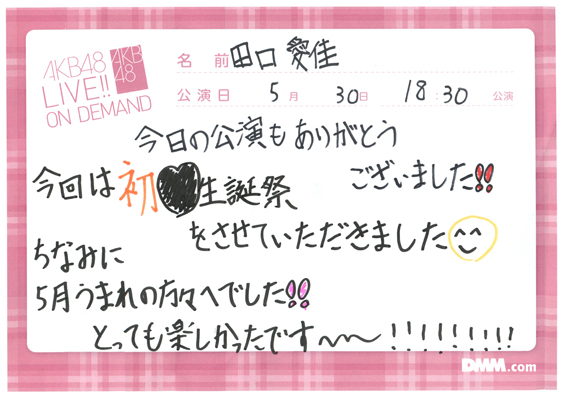 AKB48
LIVE!!
ON DEMAND
AKB
48
名 前 田口 愛佳
公演日 5月 30日 18:30 公演
今日の公演もありがとう
ございました!!
今回は初♥生誕祭
をさせていただきました
ちなみに
5月うまれの方々へでした!!
とっても楽しかったです〜〜!!!!!!!!!
DMM.com